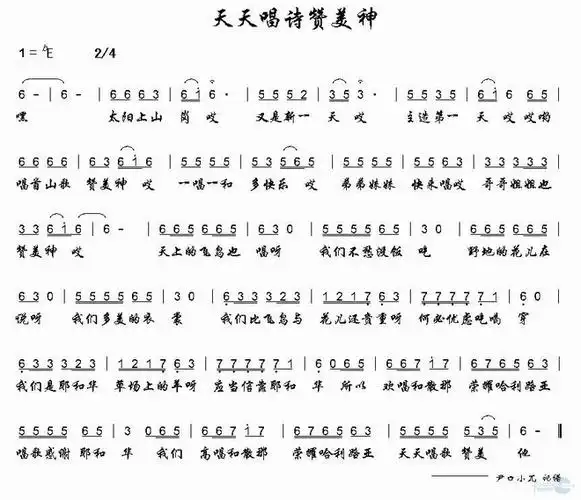 天天唱诗赞美神
1=ᵇE 2/4
6 - | 6 - | 6 6 6 3 | 6 1 6 · | 5 5 5 2 | 3 5 3 · | 5 5 3 5 | 6 1 6 6 5 | 5 5 5 5 |
嘿 太阳上山 岗 哎 又是新一 天 哎 主造第一 天 哎哎哟
6 6 6 6 | 6 3 6 1 6 | 5 5 5 5 | 5 3 5 6 5 | 5 5 5 5 | 6 6 5 3 | 5 5 5 5 |
唱首山歌 赞美神 哎 一唱一和 多快乐 哎 弟弟妹妹 快来唱哎 哥哥姐姐也
3 3 6 1 6 | 6 - | 6 6 5 6 6 5 | 6 3 0 | 5 5 5 5 6 5 | 3 0 | 6 6 5 6 6 5 |
赞美神 哎 天上的飞鸟也 唱呀 我们不愁没饭 吃 野地的花儿在
6 3 0 | 5 5 5 5 6 5 | 3 0 | 6 3 3 3 2 3 | 1 2 1 7 6 3 | 7 7 7 7 7 1 | 6 0 |
说呀 我们多美的衣 裳 我们比飞鸟与 花儿还贵重呀 何必忧虑吃喝 穿
6 3 3 3 2 3 | 1 2 1 7 6 3 | 7 7 7 7 7 1 | 6 0 6 5 | 6 6 5 6 3 | 5 5 5 5 6 5 |
我们是耶和华 草场上的羊呀 应当信靠耶和 华 所以 欢唱和散那 荣耀哈利路亚
5 5 5 5 | 6 5 3 6 5 | 6 6 5 6 3 | 5 5 5 5 6 5 | 5 5 5 5 3 5 | 6 - ‖
唱歌感谢 耶和华 我们 高唱和散那 荣耀哈利路亚 天天唱歌赞美 他
尹口小兀 记谱